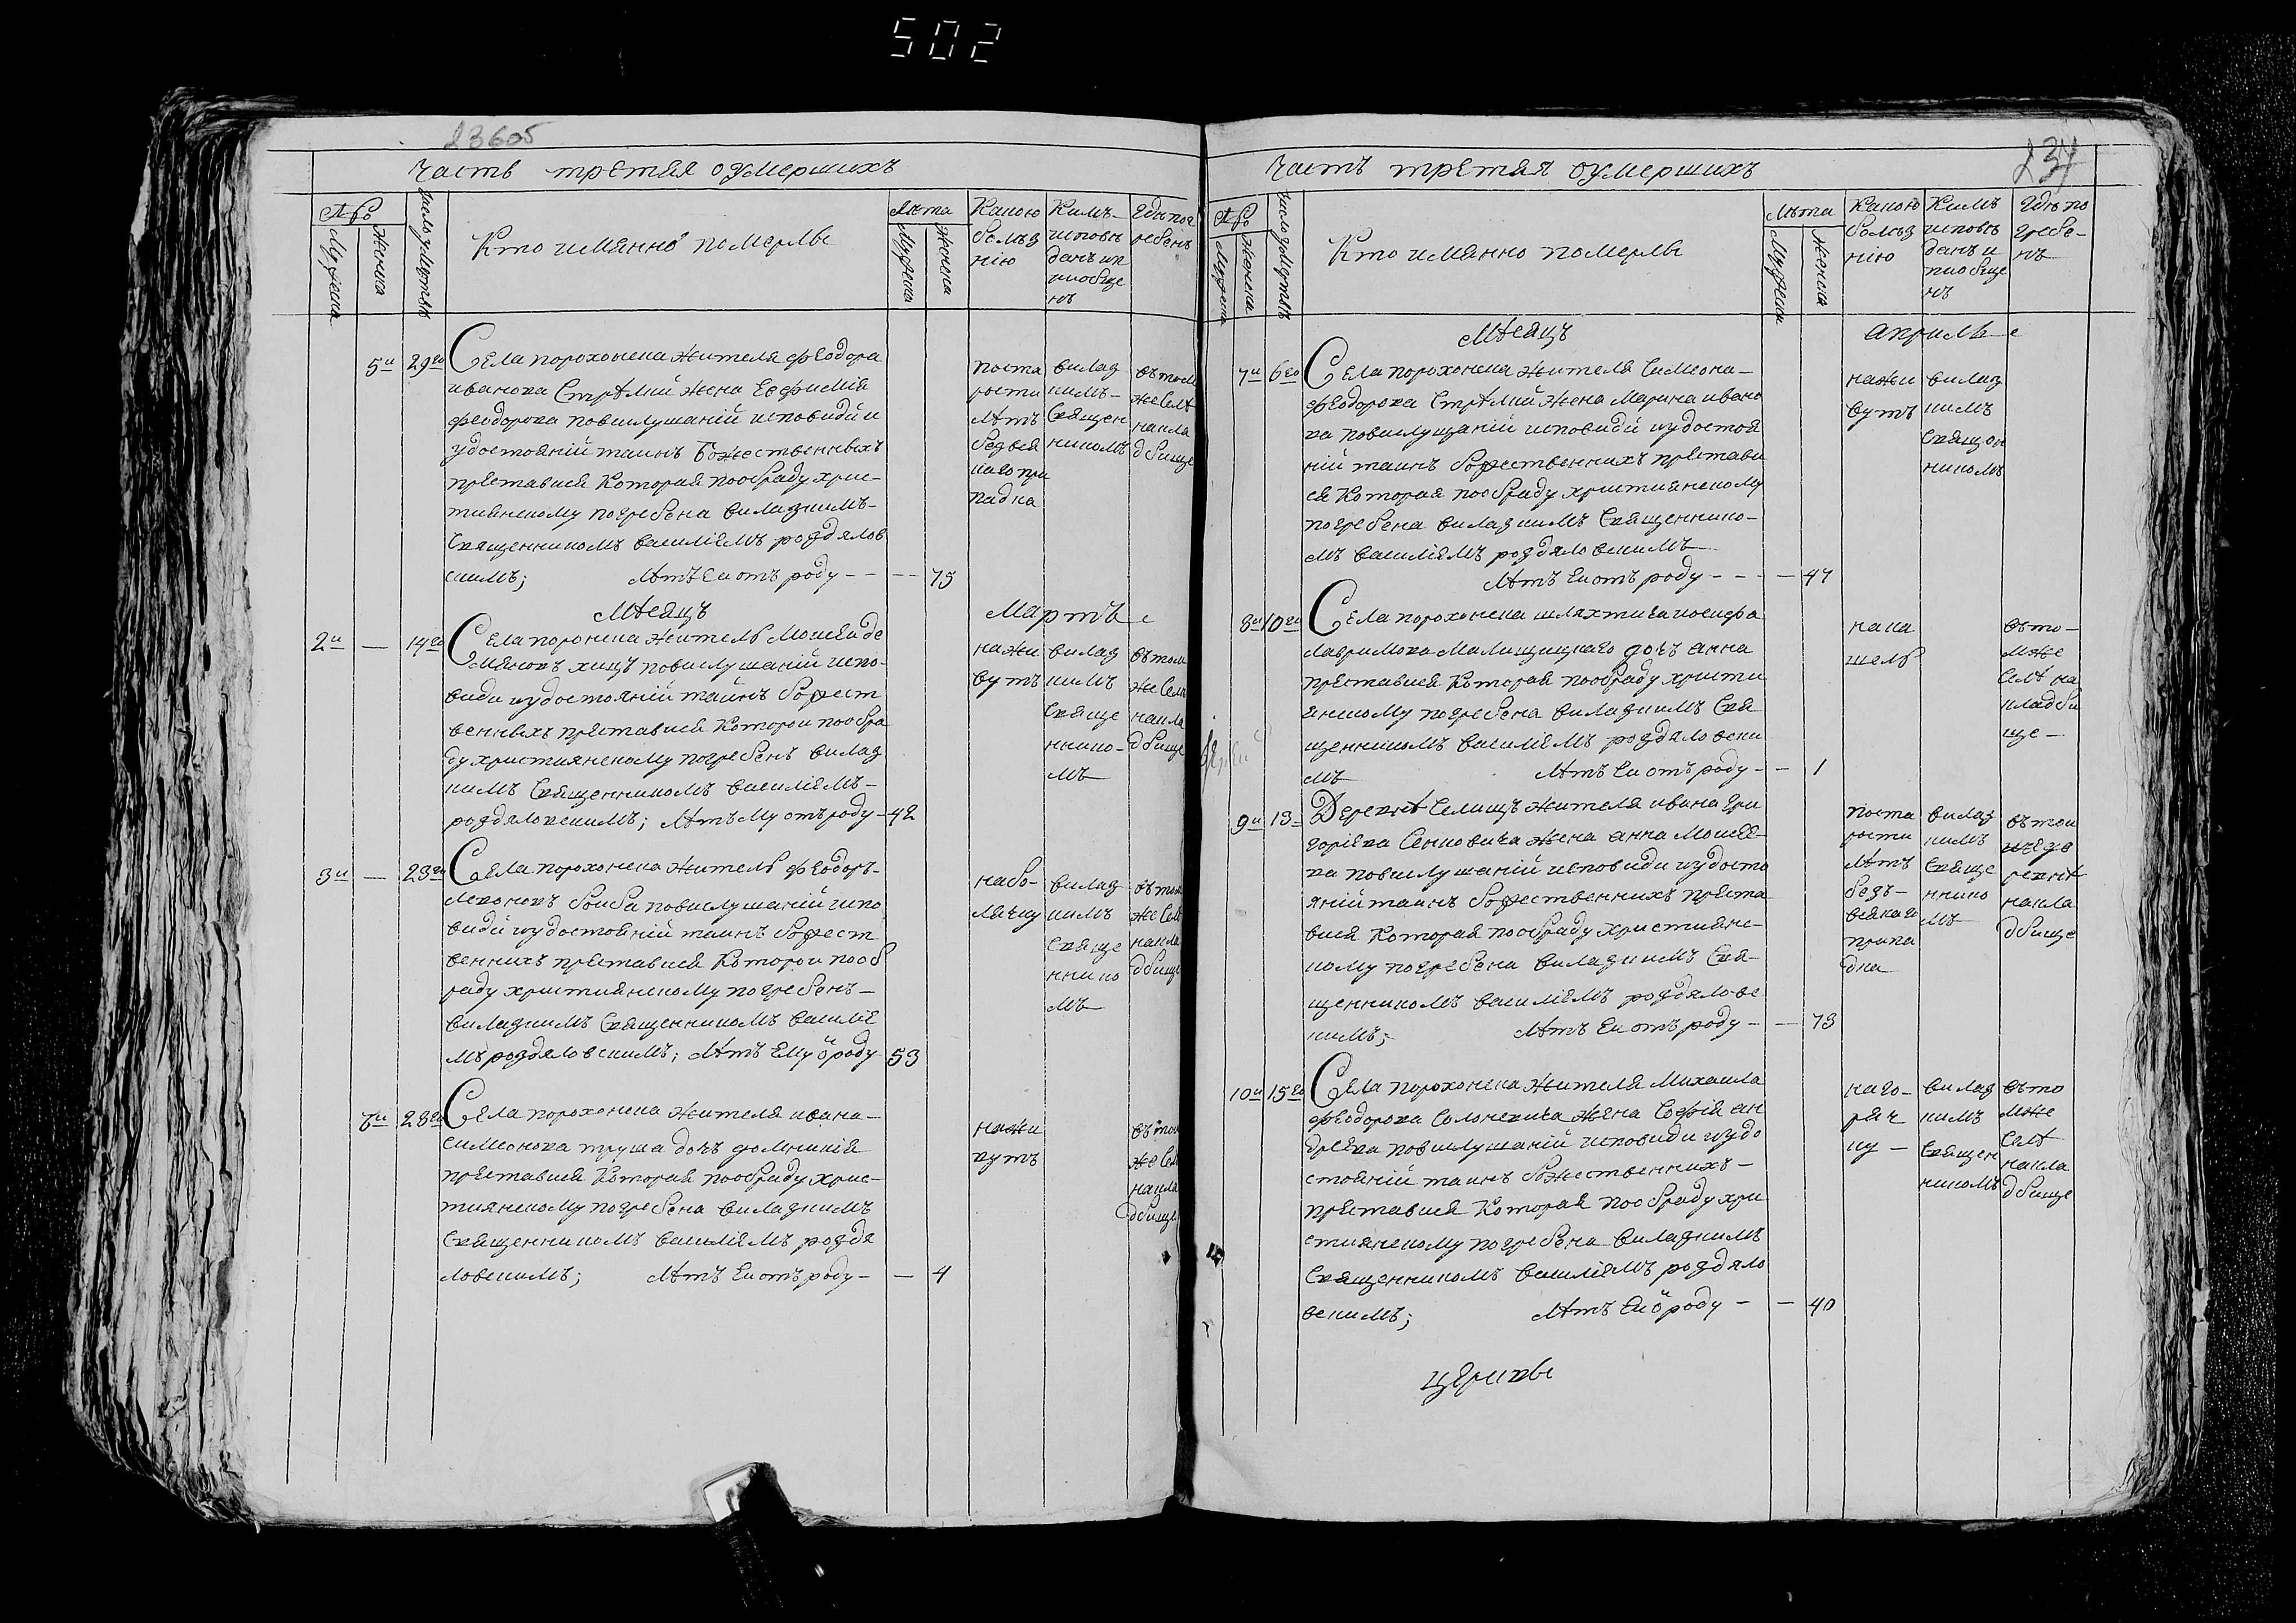 502
23605
Часть третяя оумершихъ
№
Мужеска
Женска
Число умертвъ
Кто имянно померлъ
Лѣта
Мужеска
Женска
Какою болѣз нію
Кимъ исповѣ данъ и п риобще нъ
Гдѣ пог ребенъ
5й 29го
Села порохонска жителя феодора
иванова Стрѣлки жена Евфимія
феодорова повислушаній исповидй и
удостояній таинъ Божественныхъ
преставися Которая пообраду хрис-
тиянскому погребена викладнимъ-
Священникомъ василіемъ роздялов
скимъ; Лѣтъ Еи отъ роду - - -- 75
поста
рости
лѣтъ
безвся
каго при
падка
викад
нимъ-
Священ
никомъ
вътом
же селѣ
накла
дбище
Мѣсяцъ Мартъ с
2й — 14го
Села поронска житель Моисей де
мяновъ хицъ повислушаній испо-
види иудостояній таинъ божест
венныхъ преставися Которои пообра
ду християнскому погребенъ викад
нимъ Священникомъ василіемъ-
роздяловскимъ; Лѣтъ му отъ роду - 42
нажи
вутъ
викад
нимъ
Священ
нико-
мъ
вътом
же селѣ
накла
дбище
3й — 23го
Села порохонска житель феодоръ-
леоновъ боиба повислушаній испо
види иудостояній таинъ божест
венныхъ преставися Которои пооб
раду християнскому погребенъ-
викаднимъ Священникомъ василіе
мъ роздяловскимъ; Лѣтъ Ему ѿ роду 53
набо-
лячку
викад
нимъ
Свяще
ннико
мъ
вътом
же селѣ
накла
дбище
28го
Села порохонска жителя ивана-
симеонова труша дочь домникія
преставися Которая пообраду хрис-
тиянскому погребена викаднимъ
Священникомъ василіемъ роздя
ловскимъ; Лѣтъ Еи отъ роду - — 4
нажи
вутъ
вътом
же селѣ
накла
дбище
Часть третяя оумершихъ
237
№
Мужеска
Женска
Число умертвъ
Кто имянно померлъ
Лѣта
Мужеска
Женска
Какою болѣз нію
Кимъ исповѣ данъ и приобще нъ
Гдѣ по гребе- нъ
Мѣсяцъ априль с
7й 6го
Села порохонска жителя Симеона-
феодорова Стрѣлки жена Марина ивано
ва повислушаній исповиди иудостоя
ній таинъ божественнихъ престави
ся Которая пообраду християнскому
погребена викаднимъ Священнико-
мъ василіемъ роздяловскимъ
Лѣтъ Еи отъ роду - - - — 47
нажи
вутъ
викад
нимъ
Священ
никомъ
8й 10го
Села порохонска шляхтича иосифа
дочь анна
преставися Которая пообраду христи
янскому погребена викаднимъ Свя
щенникомъ василіемъ роздяловски
мъ Лѣтъ Еи отъ роду - — 1
нака
шель
въто-
мже
Селѣ на
кладби
ще-
9й 13-
Деревнѣ Селищъ жителя ивана гри
горіева Сенковича жена анна Моисее-
ва повислушаній исповиди иудосто
яній таинъ божественнихъ преста
вися Которая пообраду християнс-
кому погребена викаднимъ Свя-
щенникомъ василіемъ роздяловс
кимъ; Лѣтъ Еи отъ роду - — 73
поста
рости
лѣтъ
безъ-
всякаго
припа
дка
викад
нимъ
Свяще
ннико
мъ
вътои
же де
ревнѣ
накла
дбище
10й 15го
Села порохонска жителя Михаила
феодорова Солоневича жена Софія ан
дреева повислушаній исповиди иудо
стояній таинъ божественнихъ-
преставися Которая пообраду хри
стиянскому погребена викаднимъ
Священникомъ василіемъ роздяло
вскимъ; Лѣтъ Еи ѿ роду - — 40
наго-
ряч
ку —
викад
нимъ
Священ
никомъ
въто
мже
Селѣ
накла
дбище
церкви